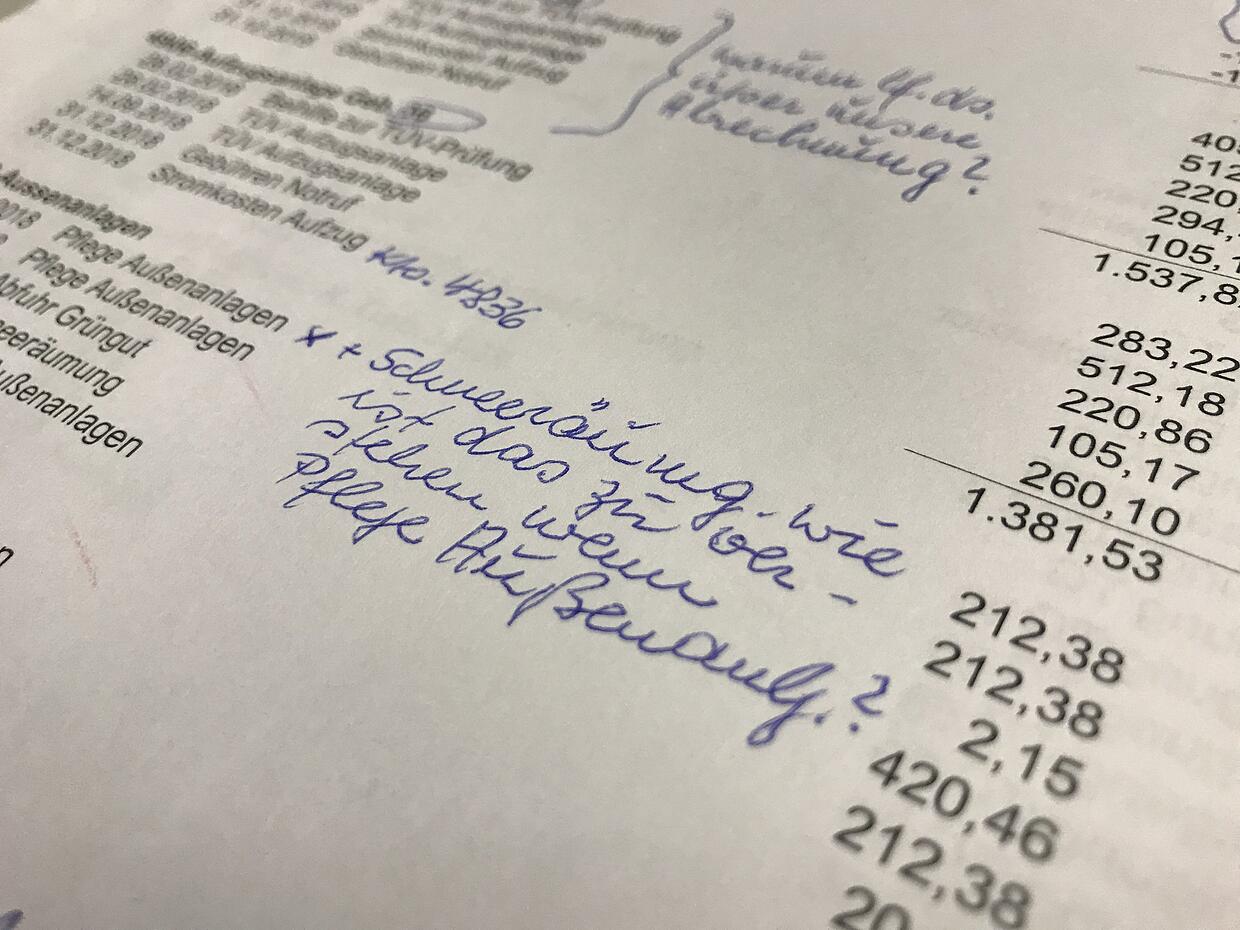 TÜV-Prüfung
Stromkosten Aufzug
Gebühren Notruf
31.12.2018
Aufzugsanlage Geb. 38
28.02.2018 Beihilfe zur TÜV-Prüfung
28.02.2018 TÜV Aufzugsanlage
14.09.2018 TÜV Aufzugsanlage
31.12.2018 Gebühren Notruf
31.12.2018 Stromkosten Aufzug Kto. 4836
warum lf. ds.
über unsere
Abrechnung?
Aussenanlagen
2018 Pflege Außenanlagen
Pflege Außenanlagen
Abfuhr Grüngut
eeräumung
ußenanlagen
* + Schneeräumung. wie
ist das zu ver-
stehen wenn
Pflege Außenanlg.?
512
220,
294,
105,1
1.537,8
283,22
512,18
220,86
105,17
260,10
1.381,53
212,38
212,38
2,15
420,46
212,38
20